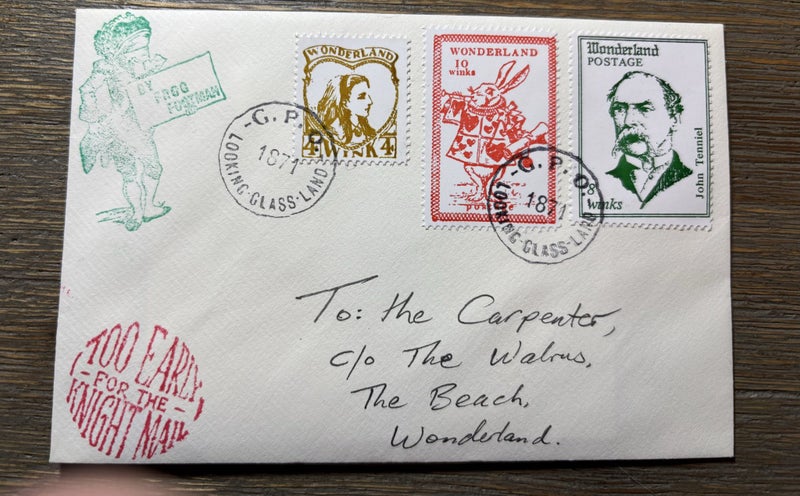 BY
FROG
FOOTMAN
WONDERLAND
4 WINK 4
WONDERLAND
10
winks
Wonderland
POSTAGE
John Tenniel
8
winks
G.P.O
1871
LOOKING-GLASS-LAND
G.P.O
1871
LOOKING-GLASS-LAND
To: the Carpenter,
c/o The Walrus,
The Beach,
Wonderland.
TOO EARLY
- FOR THE -
KNIGHT MAIL